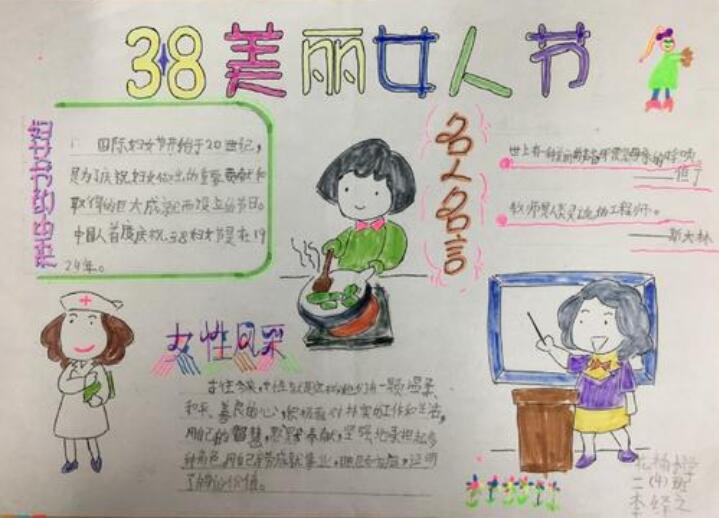 38美丽女人节
妇女节的由来
国际妇女节开始于20世纪,
是为了庆祝妇女做出的重要贡献和
取得的巨大成就而设立的节日。
中国人首度庆祝38妇女节是在19
24年。
名人名言
世上有一种美丽的声音那便是母亲的呼唤
——但丁
教师是人类灵魂的工程师。
——斯大林
女性风采
古往今来,女性
和平、善良的心,积极
的工作和生活,
用自己的智慧,默默奉献,坚强地承担起多
种角色,用自己
成就事业,
证明
了
价值。
小学
二(4)班
李
之